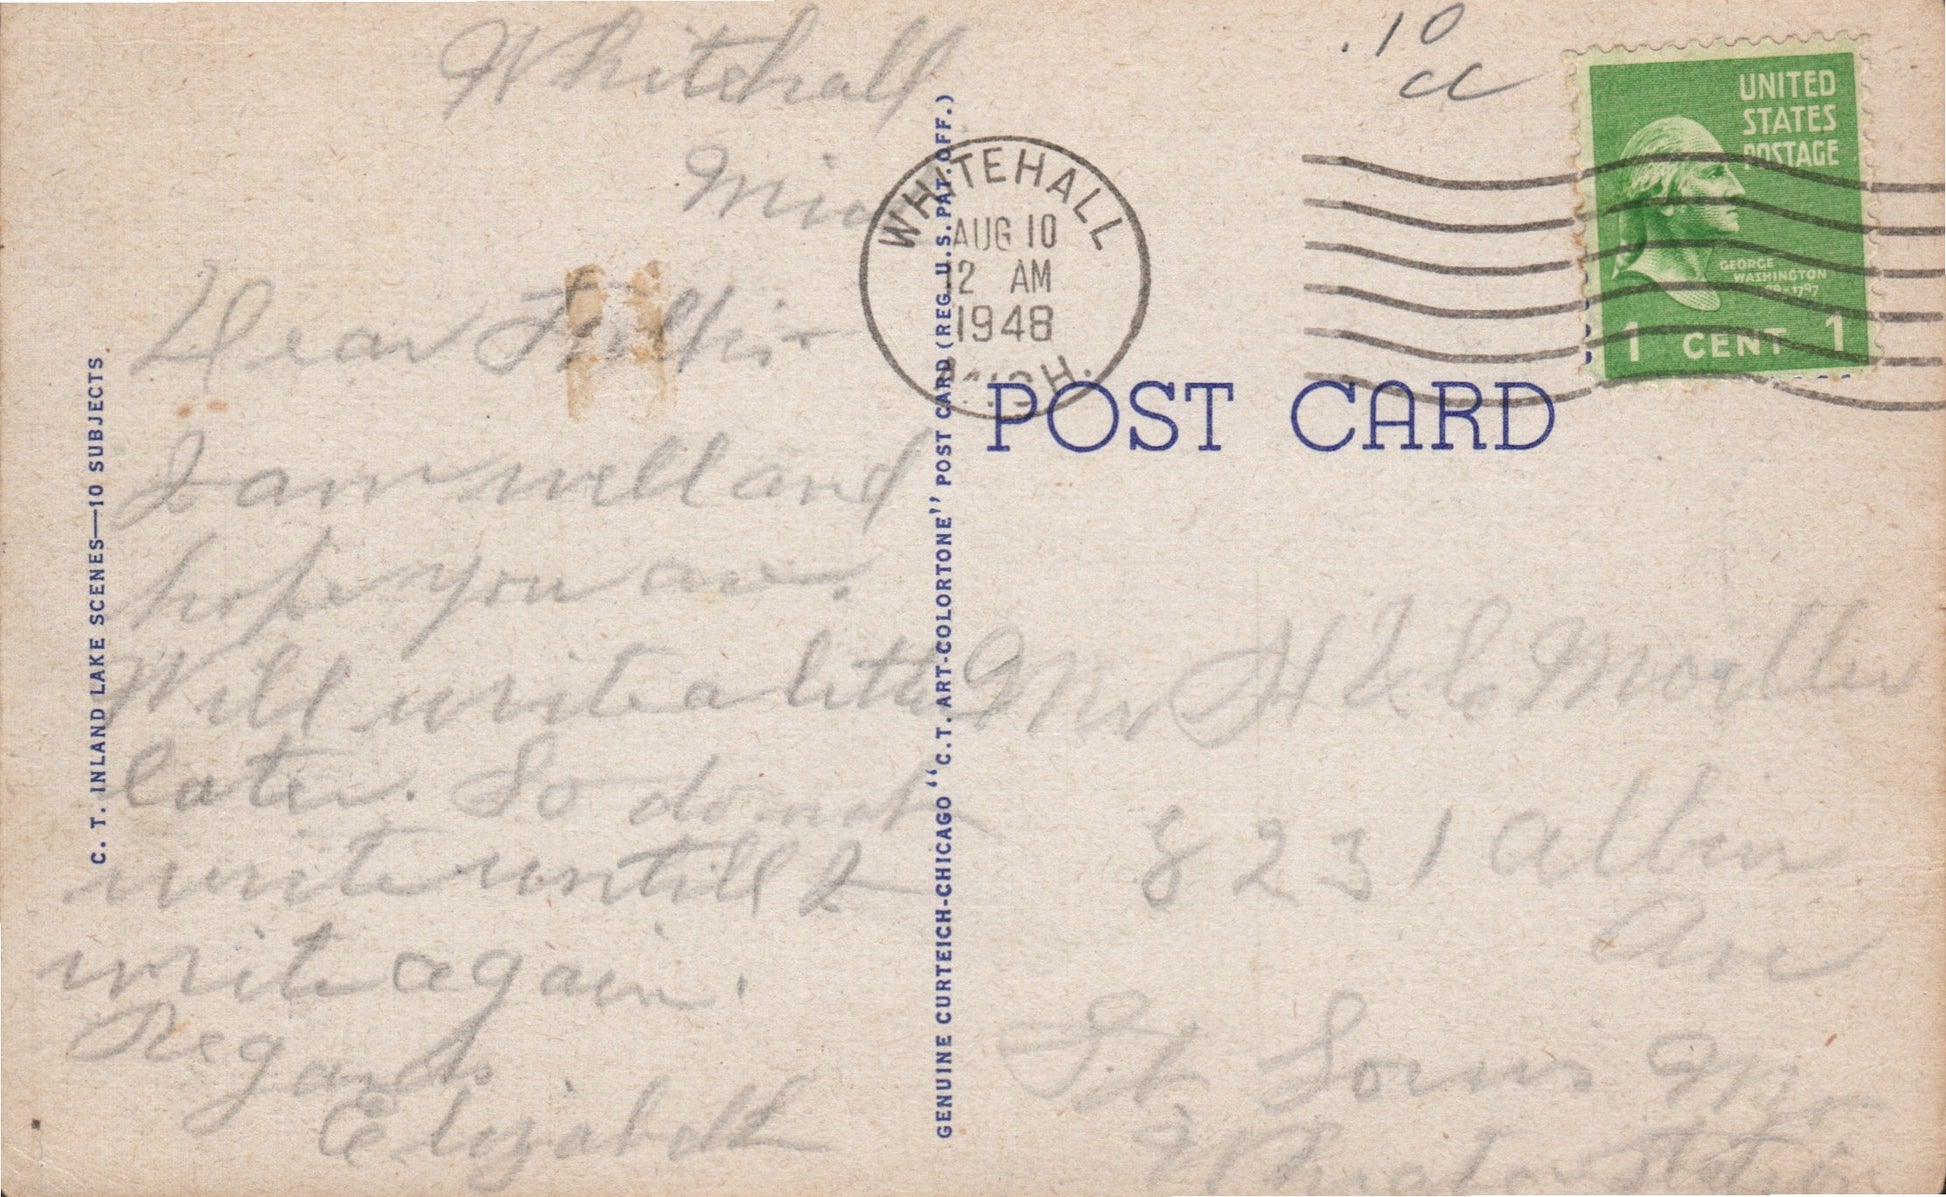 Whitehall
Mich
Dear
I am well and
hope you are.
Will write a letter
later. So do not
write untill I
write again.
Regards
Elizabeth
C. T. INLAND LAKE SCENES—10 SUBJECTS
GENUINE CURTEICH-CHICAGO "C.T. ART-COLORTONE" POST CARD (REG. U.S. PAT. OFF.)
WHITEHALL
AUG 10
12 AM
1948
MICH.
.10
cc
UNITED
STATES
POSTAGE
GEORGE
WASHINGTON
1 CENT 1
POST CARD
Mr H
8231 Albin
Ave
St Louis Mo